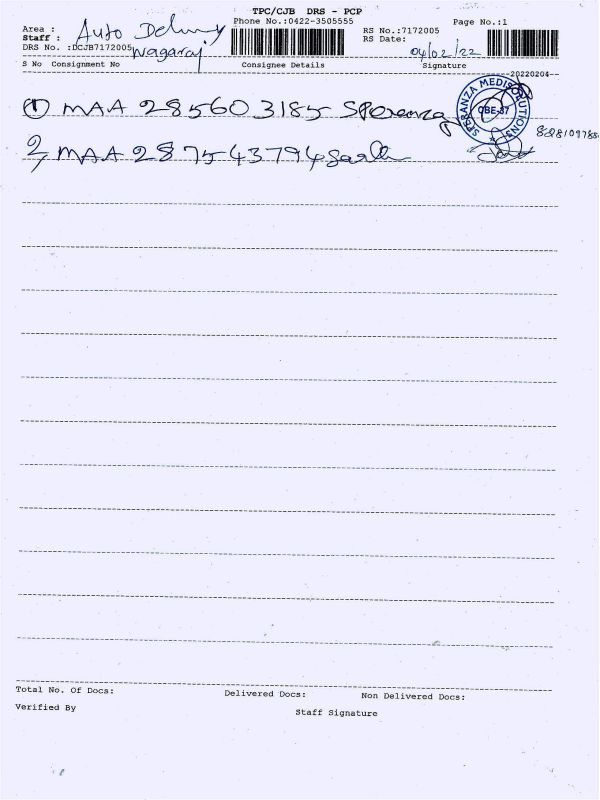 TPC/CJB DRS - PCP
Area : Auto Delivery
Phone No.:0422-3505555
Page No.:1
Staff : Nagaraj
RS No.:7172005
DRS No. :DCJB7172005
RS Date: 04/02/22
S No Consignment No Consignee Details Signature
--20220204--
① MAA 285603185 Speranza
SPERANZA MEDISOLUTIONS
CBE-37
2, MAA 287543794
Total No. Of Docs: Delivered Docs: Non Delivered Docs:
Verified By Staff Signature